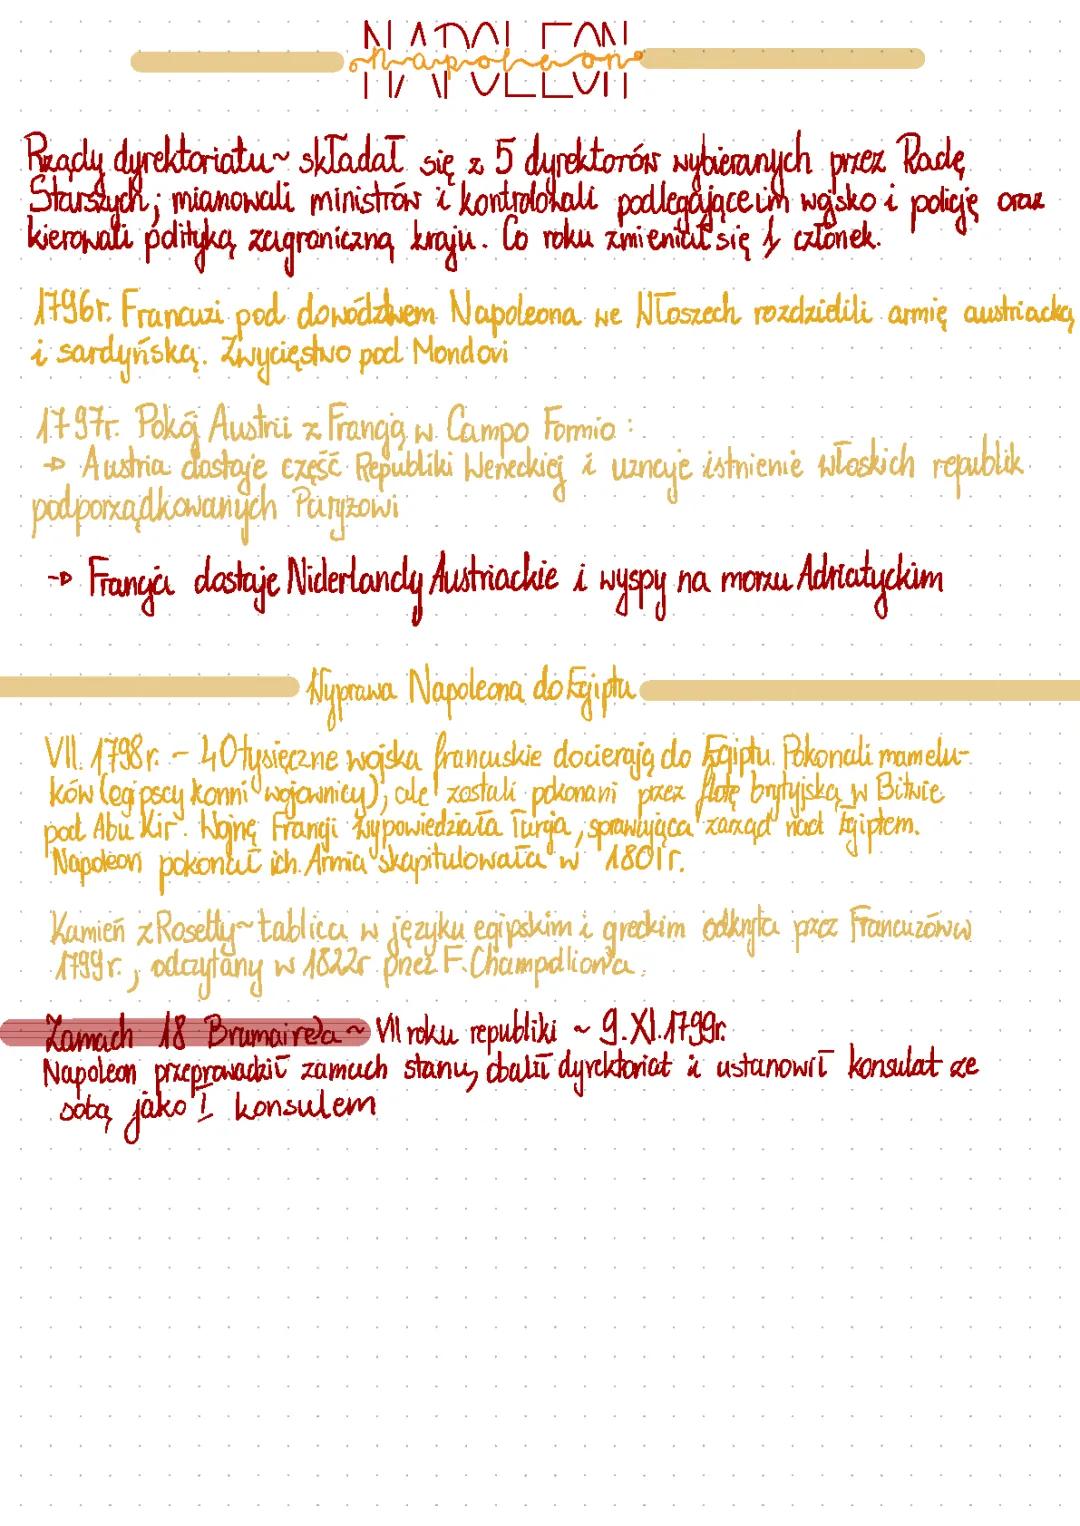 NAPOLEON
Napoleon
Rządy dyrektoriatu~ składał się z 5 dyrektorów wybieranych przez Radę
Starszych; mianowali ministrów i kontrolowali podlegające im wojsko i policję oraz
kierowali polityką zagraniczną kraju. Co roku zmieniał się 1 członek.
1796r. Francuzi pod dowództwem Napoleona we Włoszech rozdzielili armię austriacką
i sardyńską. Zwycięstwo pod Mondovi
1797r. Pokój Austrii z Francją w Campo Formio:
→ Austria dostaje część Republiki Weneckiej i uznaje istnienie włoskich republik
podporządkowanych Paryżowi
→ Francja dostaje Niderlandy Austriackie i wyspy na morzu Adriatyckim
Wyprawa Napoleona do Egiptu
VII. 1798r. - 40tysięczne wojska francuskie docierają do Egiptu. Pokonali mamelu-
ków (egipscy konni wojownicy), ale zostali pokonani przez flotę brytyjską w Bitwie
pod Abu Kir. Wojnę Francji wypowiedziała Turcja, sprawująca zarząd nad Egiptem.
Napoleon pokonał ich. Armia skapitulowała w 1801r.
Kamień z Rosetty~ tablica w języku egipskim i greckim odkryta przez Francuzów w
1799r., odczytany w 1822r przez F. Champollion'a.
Zamach 18 Brumaire'a ~ VII roku republiki ~ 9.XI.1799r.
Napoleon przeprowadził zamach stanu, obalił dyrektoriat i ustanowił konsulat ze
sobą jako I konsulem